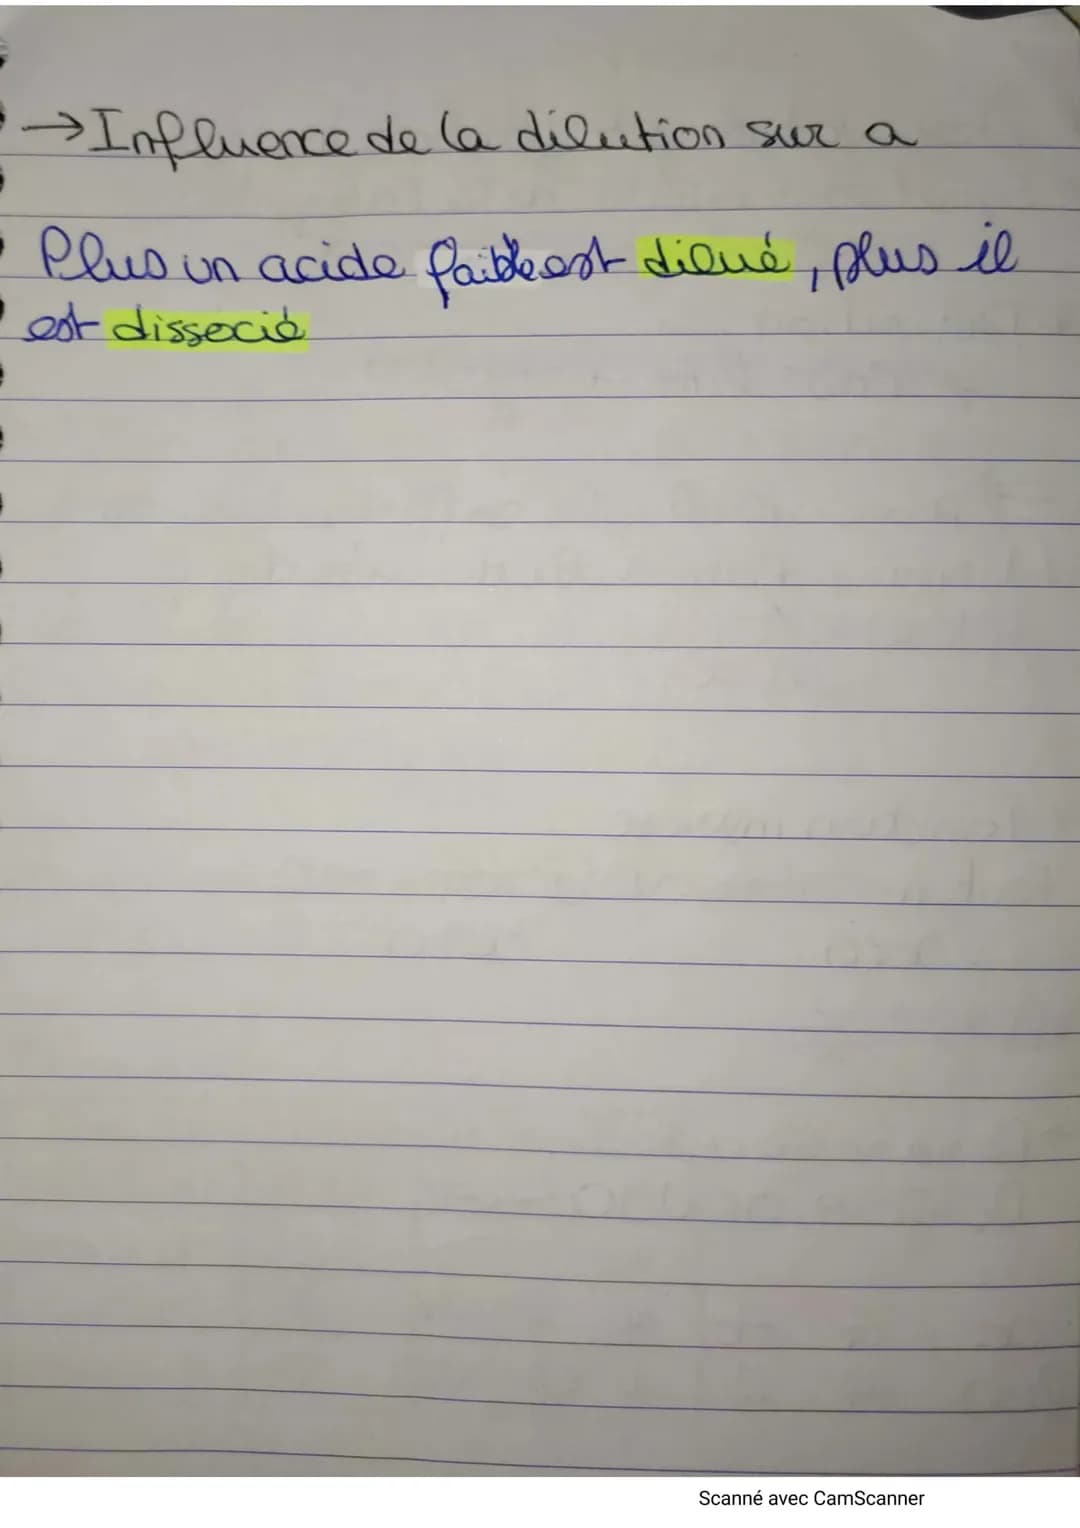 → Influence de la dilution sur a
Plus un acide faible est dilué, plus il
est dissocié
Scanné avec CamScanner